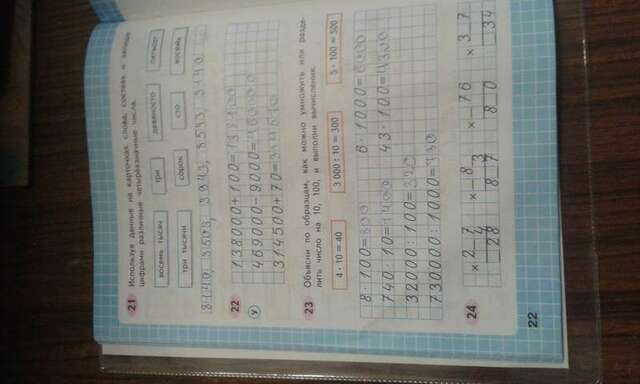 21 Используя данные на карточках слова, составь и запиши
цифрами различные четырёхзначные числа.
восемь тысяч три девяносто пятьсот
три тысячи сорок сто восемь
22 138000+100=138100
У 469000-9000=460000
314500+70=314570
23 Объясни по образцам, как можно умножить или разде-
лить число на 10, 100, и выполни вычисления.
4 · 10 = 40 3 000 : 10 = 300 5 · 100 = 500
8·100=800 6·1000=6000
740·10=7400 43·100=4300
32000:100=320
730000:1000=730
24 ×2_7 ×_8_3 ×_76 ×_37
_28_ _87 _80 _34
22